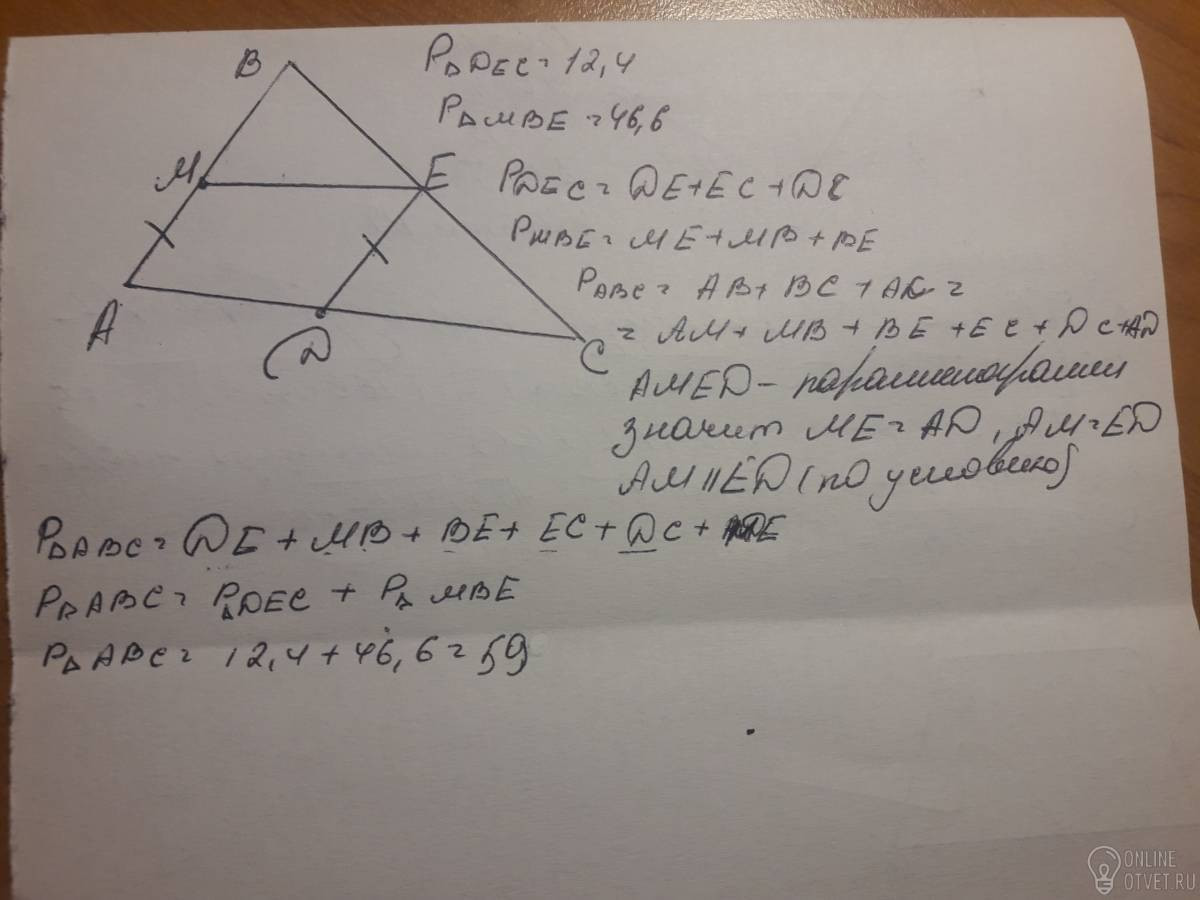 B
M
E
A
D
C
P△DEC = 12,4
P△MBE = 46,6
PDEC = DE + EC + DC
PMBE = ME + MB + BE
PABC = AB + BC + AC =
= AM + MB + BE + EC + DC + AD
AMED – параллелограмм
значит ME = AD, AM = ED
AM || ED (по условию)
P△ABC = DE + MB + BE + EC + DC +
P△ABC = P△DEC + P△MBE
P△ABC = 12,4 + 46,6 = 59
ONLINE
OTVET.RU